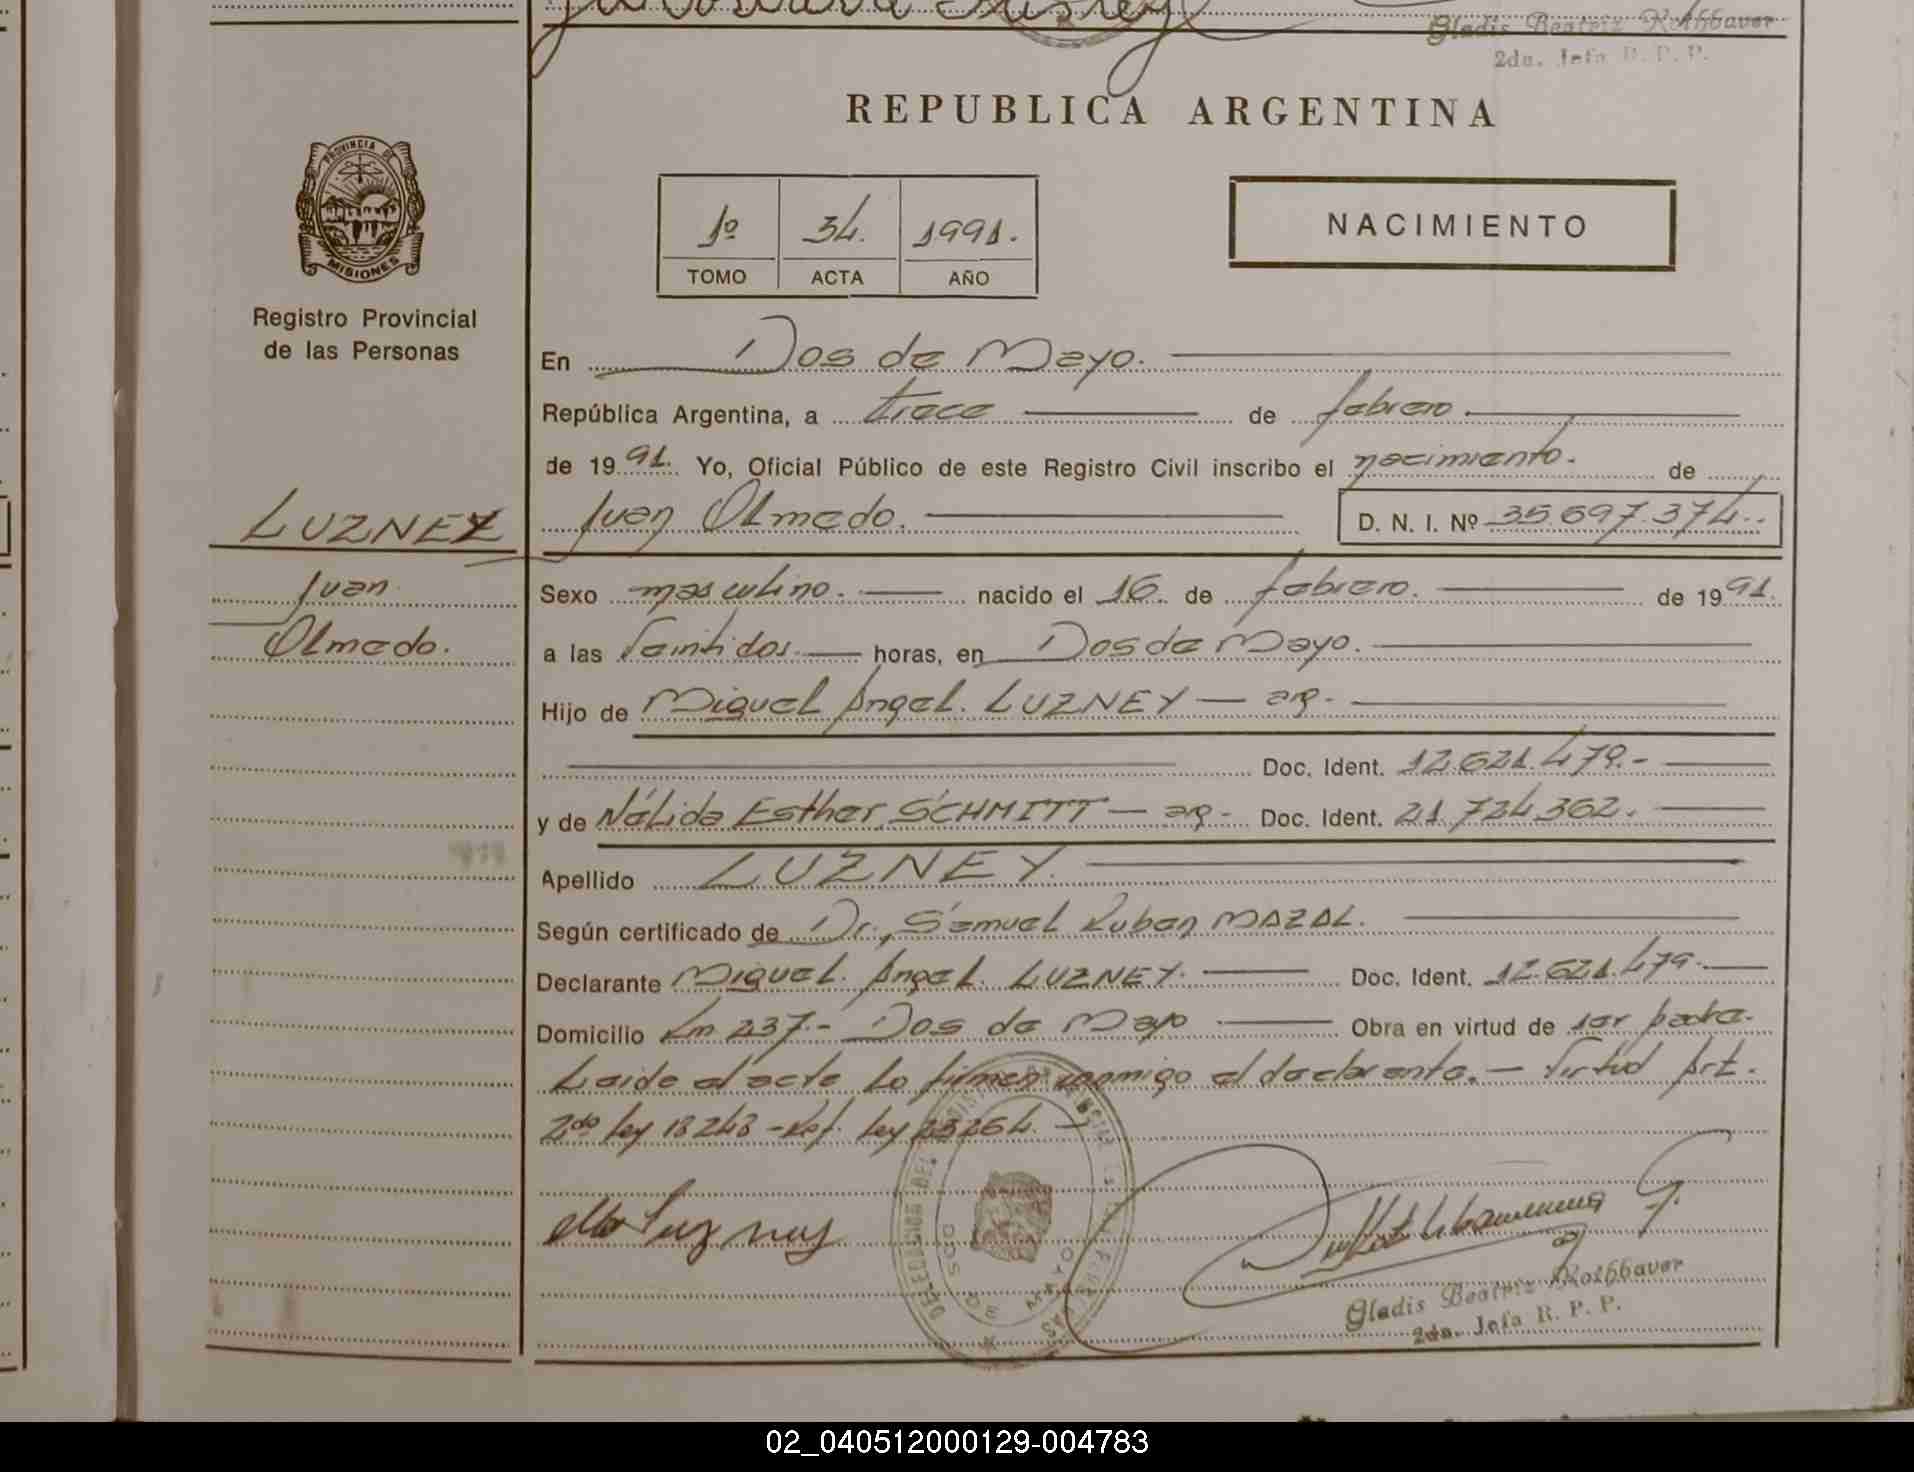 Gladis Beatriz Rothbauer
2da. Jefa R. P. P.
REPUBLICA ARGENTINA
PROVINCIA DE
MISIONES
Registro Provincial
de las Personas
1º 34. 1991.
TOMO ACTA AÑO
NACIMIENTO
En Dos de Mayo.
República Argentina, a trece de febrero.
de 1991. Yo, Oficial Público de este Registro Civil inscribo el nacimiento. de
LUZNEY
Juan Olmedo. D. N. I. Nº 35.697.374.
Juan
Olmedo.
Sexo masculino. nacido el 16. de febrero. de 1991.
a las Veintidos. horas, en Dos de Mayo.
Hijo de Miguel Angel. LUZNEY — arg.
Doc. Ident. 12.621.479.-
y de Nélida Esther SCHMITT — arg- Doc. Ident. 21.724.362.
Apellido LUZNEY.
Según certificado de Dr., Samuel Ruben MAZAL.
Declarante Miguel. Angel. LUZNEY. Doc. Ident. 12.621.479.
Domicilio Km 237.- Dos de Mayo Obra en virtud de ser padre.
Leida el acta la firman conmigo el declarante. — Virtud Art.
2do ley 18248 - Ref. ley 23264. —
Luzney
DELEGACION DEL REGISTRO DE LAS PERSONAS
DOS DE MAYO
Gladis Beatriz Rothbauer
2da. Jefa R. P. P.
02_040512000129-004783